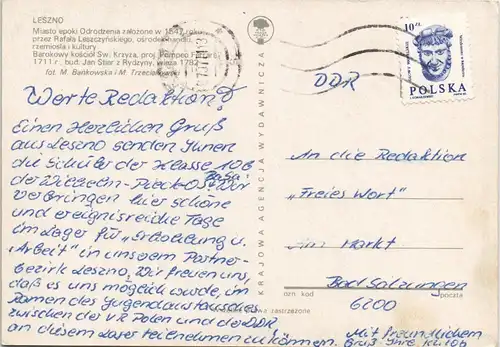 LESZNO
Miasto epoki Odrodzenia założone w 1547 r.
przez Rafała Leszczyńskiego, ośrodek handlu,
rzemiosła i kultury
Barokowy kościół Św. Krzyża, proj. Pompeo Ferrari
1711 r., bud. Jan Stier z Rydzyny, wieża 1782
fot. M. Bańkowska i M. Trzeciak
Werte Redaktion!
Einen Herzlichen Gruß
aus Leszno senden Ihnen
die Schüler der Klasse 10b
der Wilhelm-Pieck-OS BaSa. Wir
verbringen hier schöne
und ereignisreiche Tage
im Lager für „Erholung u.
Arbeit" in unserem Partner-
bezirk Leszno. Wir freuen uns,
daß es uns möglich wurde, im
Rahmen des Jugendaustausches
zwischen der VR Polen und der DDR
an diesem Lager teilnehmen zu können.
Mit freundlichem
Gruß Ihre Kl. 10b
KRAJOWA AGENCJA WYDAWNICZA
10 zł
POLSKA
DDR
An die Redaktion
"Freies Wort"
Am Markt
Bad Salzungen
6200
ozn. kod
poczta
zastrzeżone